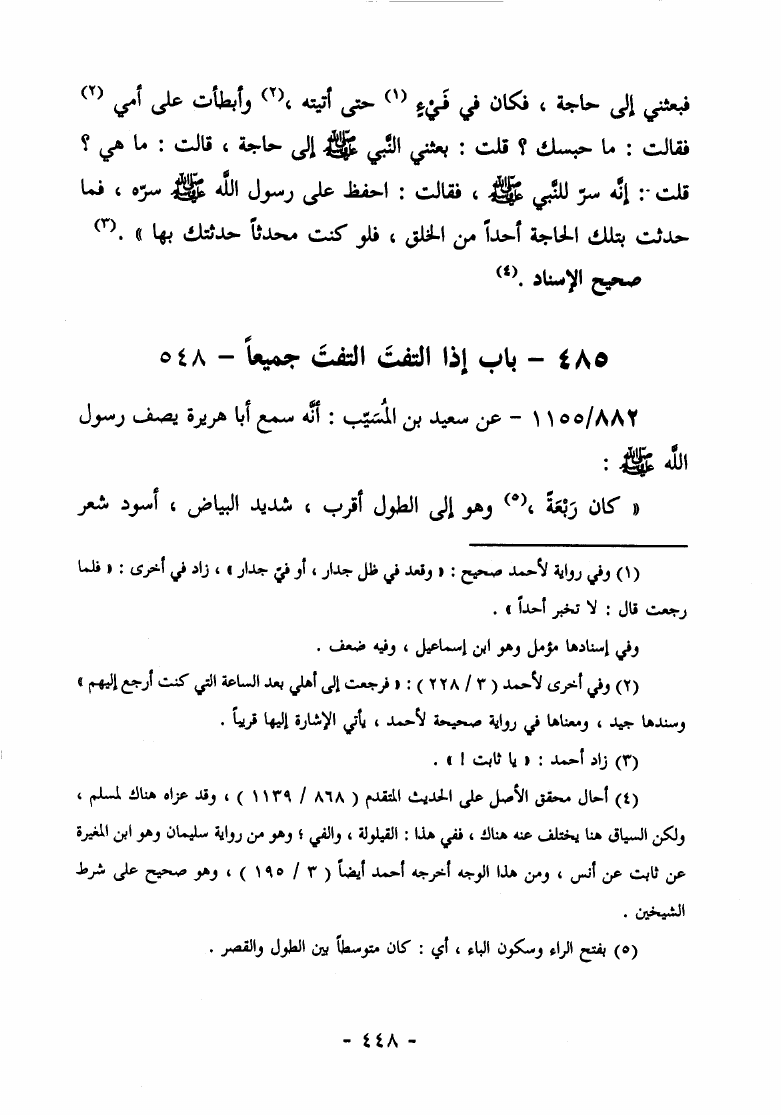 فبعثني إلى حاجة ، فكان في فَيْءٍ (١) حتى أتيته ،(٢) وأبطأت على أمي (٢)
فقالت : ما حبسك ؟ قلت : بعثني النَّبي ﷺ إلى حاجة ، قالت : ما هي ؟
قلت : إنَّه سرّ للنَّبي ﷺ ، فقالت : احفظ على رسول اللَّه ﷺ سرّه ، فما
حدثت بتلك الحاجة أحداً من الخلق ، فلو كنت محدثاً حدثتك بها » .(٣)
صحيح الإسناد .(٤)
٤٨٥ – باب إذا التفتَ التفتَ جميعاً – ٥٤٨
١١٥٥/٨٨٢ – عن سعيد بن المُسَيّب : أنَّه سمع أبا هريرة يصف رسول
اللَّه ﷺ :
« كان رَبْعَةً ،(٥) وهو إلى الطول أقرب ، شديد البياض ، أسود شعر
(١) وفي رواية لأحمد صحيح : « وقعد في ظل جدار ، أو فيّ جدار » ، زاد في أخرى : « فلما
رجعت قال : لا تخبر أحداً » .
وفي إسنادها مؤمل وهو ابن إسماعيل ، وفيه ضعف .
(٢) وفي أخرى لأحمد ( ٣ / ٢٢٨ ) : « فرجعت إلى أهلي بعد الساعة التي كنت أرجع إليهم »
وسندها جيد ، ومعناها في رواية صحيحة لأحمد ، يأتي الإشارة إليها قريباً .
(٣) زاد أحمد : « يا ثابت ! » .
(٤) أحال محقق الأصل على الحديث المتقدم ( ٨٦٨ / ١١٣٩ ) ، وقد عزاه هناك لمسلم ،
ولكن السياق هنا يختلف عنه هناك ، ففي هذا : القيلولة ، والفي ؛ وهو من رواية سليمان وهو ابن المغيرة
عن ثابت عن أنس ، ومن هذا الوجه أخرجه أحمد أيضاً ( ٣ / ١٩٥ ) ، وهو صحيح على شرط
الشيخين .
(٥) بفتح الراء وسكون الباء ، أي : كان متوسطاً بين الطول والقصر .
- ٤٤٨ -